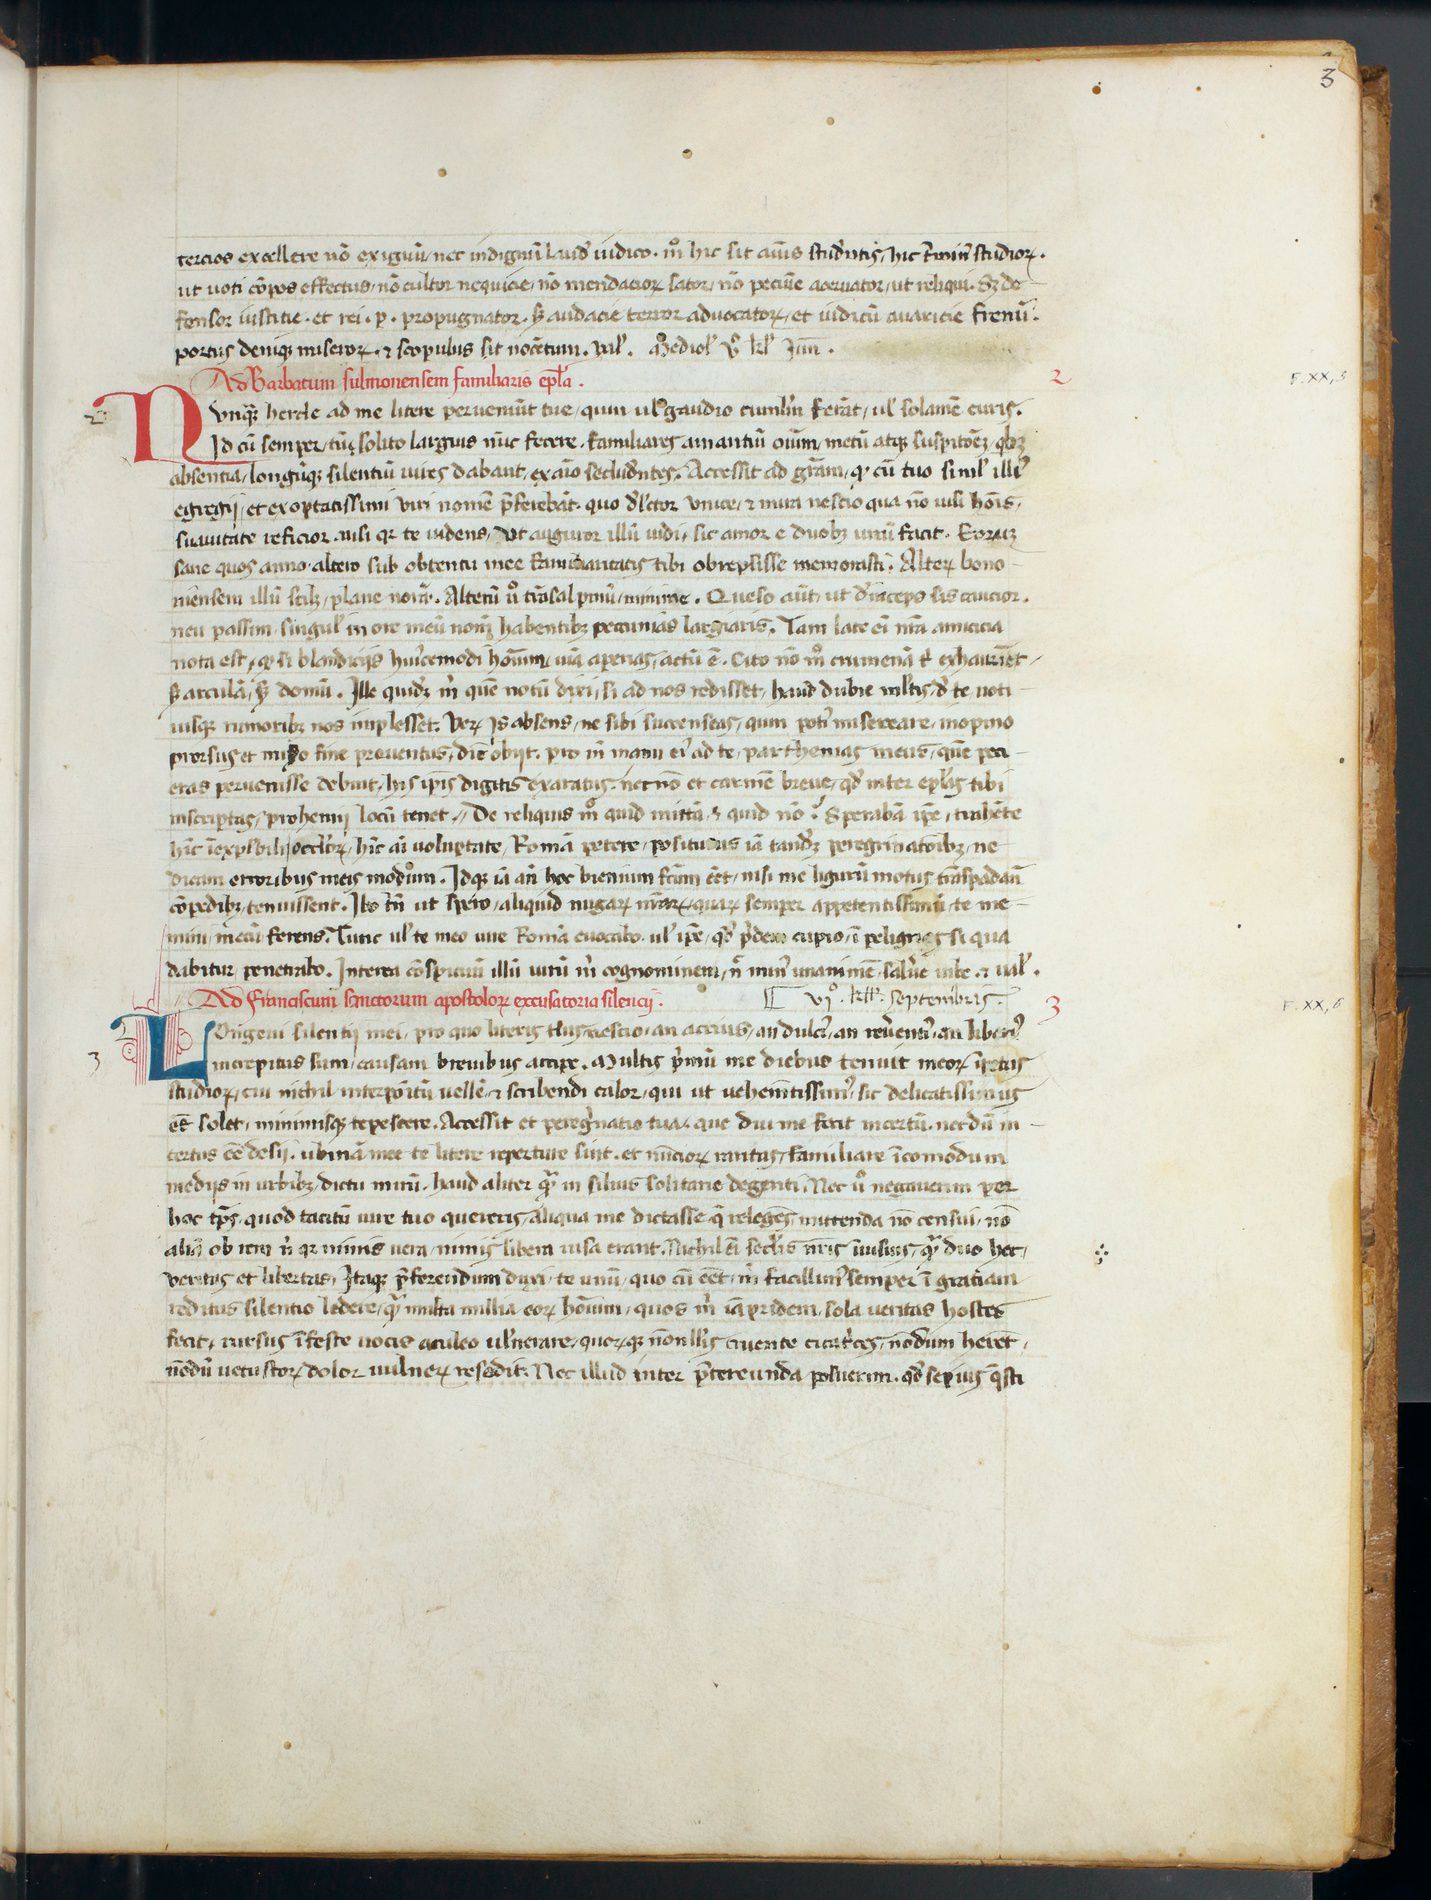 3
tercios excellere nō exiguū, nec indignū laud̄ iudico. m̊ hic sit aīus studētis, hic t̄miꝰ studioꝝ.
ut uoti cōpos effectus, nō cultor nequicie, nō mendacioꝝ sator, nō pecunie aceruator, ut reliqui. Sꝫ de
fensor iustitie. et rei. p. propugnator. ꝫ audacie terror aduocatoꝝ, et iudicū auaricie frenū.
portus deniqꝫ miseroꝝ. ⁊ scopulus sit nocētum. Val̄. Mediol̄ vͦ kl̄ Jun̄.
Ad Barbatum sulmonensem familiaris epl̄a.
2
F. XX, 5
2
Nvnqꝫ hercle ad me litere peruenīut tue, quin ul̄ gaudio cumlm̄ ferāt, ul̄ solamē curis.
Id cū semper, tūc solito largius nūc fecere. familiares amantiū oīum, metū atqꝫ suspitōeꝫ, qbꝫ
absentia, longūqꝫ silentiū uires dabant, ex aīo secludētes. Accessit ad gr̄am, ꝙ cū tuo simul̄ illiꝰ
egregij, et exoptatissimi viri nomē p̄ferebāt. quo d̄lector vnice, ⁊ mira nescio qua nō uisi hoīs,
suauitate reficior. nisi qꝛ te uidens, vt auguror illū uidi, sic amor e duobꝫ unū facit. Eorūꝫ
sane quos anno altero sub obtentu mee familiaritatis tibi obrepsisse memorasti. Alteꝝ bono-
niensem illū scilꝫ, plane noram̄. Alterū uͦ trāsalpinū, minime. Queso aūt, ut d̄inceps sis caucior.
neu passim singul̄ in ore meū nom̄ habentibꝫ pecunias largiaris. Tam late eī nr̄a amicicia
nota est, ꝙ si blandicijs huīcemodi hoīum, uiā aperias, actū ē. Cito nō mͦ crumenā t̄ exhauriēt,
ꝫ arculā, ꝫ domū. Ille quideꝫ m̄ quē notū dixi, si ad nos redisset, haud dubie mltis d̄ te, uoti
uisqꝫ rumoribꝫ nos implesset. Veꝝ is absens, ne sibi succenseas, quin potiꝰ misereare, inopino
prorsus et misero fine preuentus, diē obijt. pro in manu eiꝰ ad te, parthenias meus, quē peci-
eras peruenisse debuit, his ip̄is digitis exaratus. necnō et carmē breue, qd̄ inter epl̄as tibi
inscriptas, prohemij locū tenet. De reliquis mͦ quid mittā, ⁊ quid nō? Sperabā ip̄e, trahēte
hīc īexplebili oculoꝝ, hīc aī uoluptate, Romā petere, positurus iā tandeꝫ peregrinatōibꝫ, ne
dicam erroribus meis modum. Idqꝫ iā an̄ hoc biennium fc̄m eēt, nisi me ligurū motus trāspadan̄
cōpedibꝫ tenuissent. Ibo tn̄ ut spero, aliquid nugaꝝ nr̄aꝝ, quaꝝ semper appetentissimū, te me-
mini, mecū ferens. Tunc ul̄ te meo iure Romā euocabo. ul̄ ip̄e, qd̄ p̄dem cupio, ī pelignos si qua
dabitur penetrabo. Interea cōspicuū illū uirū m̄ cognominem, n̄ minꝰ unanimē, saluēre iube. ⁊ ual̄.
Ad Franciscum sanctorum apostoloꝝ excusatoria silencij.
vjͦ. kll̄. septembris.
3
F. XX, 6
3
LOngeui silentij mei, pro quo literis tuis nescio, an acriꝰ, an dulciꝰ, an reuerentiꝰ, an liberiꝰ
increpitus sum, causam breuibus accipe. Multis p̄mū me diebus tenuit meoꝝ īpetus
studioꝝ, cui nichil interpoītū uellē, ⁊ scribendi calor, qui ut uehemētissimꝰ, sic delicatissimus
eē solet, minimisqꝫ tepescere. Accessit et peregrinatio tua. que diu me fecit incertū. necdū in-
certus eē desij. ubinā mee te litere reperture sint. et nūcioꝝ raritas, familiare īcomodum
medijs in urbibꝫ dictu mirū. haud aliter qͣm in siluis solitarie degenti. Nec uͦ negauerim per
hoc tp̄s, quod tacitū iure tuo quereris, aliqua me dictasse q̄ relegēs, mittenda nō censui, nō
aliā ob rem n̄ qꝛ nimis uera, nimis libera uisa erant. Nichil eī sec̄lis nr̄is īuisius, qͣm duo hec,
veritas et libertas. Itaqꝫ p̄ferendum duxi, te unū, quo cū eēt, m̄ facillimꝰ semper ī gratiam
reditus silentio ledere, qͣm multa millia eoꝝ hoīum, quos m̄ iā pridem, sola ueritas hostes
fecit, rursus īfeste uocis aculeo ul̄nerare, quoꝝqꝫ nōnll̄is cruente cicatrices, nōdum herēt,
nōdū uetustoꝝ dolor uulneꝝ resedit. Nec illud inter p̄tereunda posuerim. qd̄ sepius q̄sti